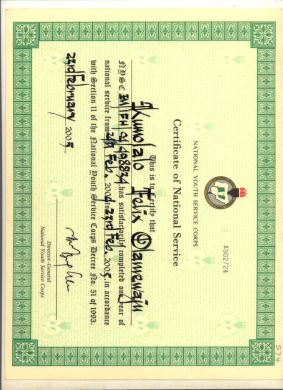 A902724
NATIONAL YOUTH SERVICE CORPS
Certificate of National Service
This is to certify that
Ikumolalo Felix Oamewaju
NYSC has satisfactorily completed one year of
national service from Feb. 2004 to 23rd Feb. 2005, in accordance
with Section 11 of the National Youth Service Corps Decree No. 51 of 1993.
23rd February 2005.
Director-General
National Youth Service Corps